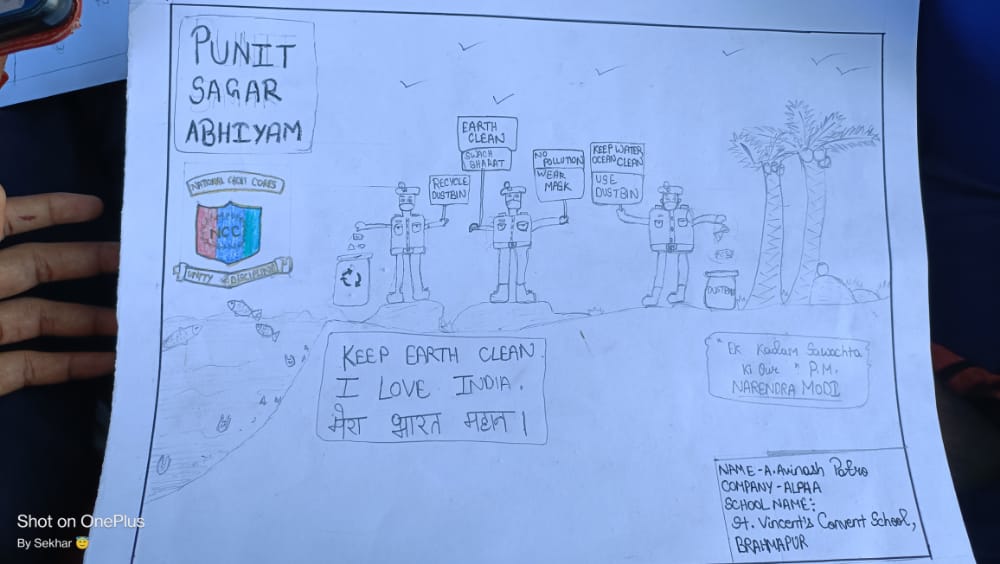 PUNIT
SAGAR
ABHIYAM
NATIONAL CADET CORES
NCC
UNITY DISCIPLINE
RECYCLE
DUSTBIN
EARTH
CLEAN
SWACH
BHARAT
NO
POLLUTION
WEAR
MASK
KEEP WATER
OCEAN CLEAN
USE
DUSTBIN
DUSTBIN
KEEP EARTH CLEAN
I LOVE INDIA.
मेरा भारत महान।
"EK Kadam Sawachta
Ki Our " P.M.
NARENDRA MODI
NAME-A.Avinash Patro
COMPANY-ALPAA
SCHOOL NAME:
St. Vincent's Convent School,
BRAHMAPUR
Shot on OnePlus
By Sekhar 😇